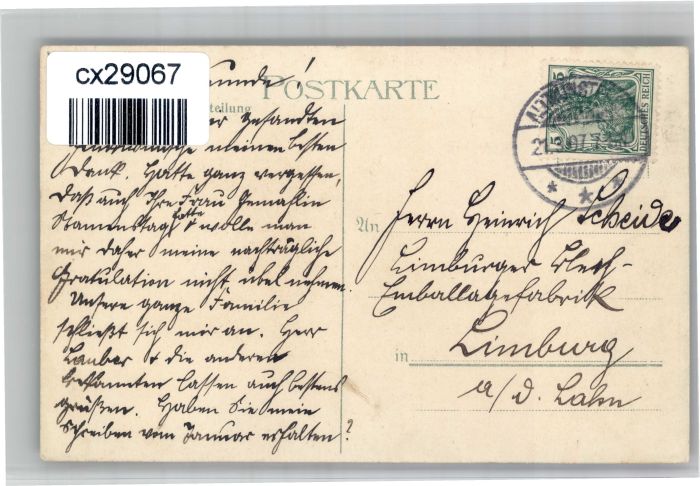 cx29067
unde!
POSTKARTE
teilung
er gesandten
meinen besten
Dank. Hatte ganz vergessen,
daß auch Ihre Frau Gemahlin
Namenstag hatte & wolle man
mir daher meine nachträgliche
Gratulation nicht übel nehmen.
Unsere ganze Familie
schließt sich mir an. Herr
Lauber & die anderen
Bekannten lassen auch bestens
grüßen. Haben Sie mein
Schreiben vom Januar erhalten?
DEUTSCHES REICH
5
07
An
Herrn Heinrich Scheide
Limburger Blech-
Emballagefabrik
in
Limburg
a/d. Lahn